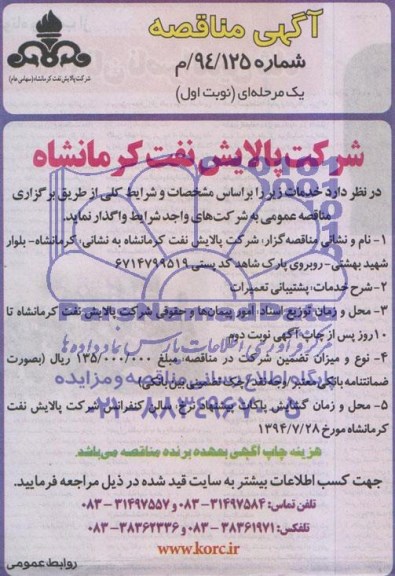 آگهی مناقصه
شماره ۹۴/۱۲۵/م
یک مرحله‌ای (نوبت اول)
شرکت پالایش نفت کرمانشاه (سهامی عام)
شرکت پالایش نفت کرمانشاه
در نظر دارد خدمات زیر را براساس مشخصات و شرایط کلی از طریق برگزاری
مناقصه عمومی به شرکت‌های واجد شرایط واگذار نماید.
۱- نام و نشانی مناقصه‌گزار: شرکت پالایش نفت کرمانشاه به نشانی: کرمانشاه- بلوار
شهید بهشتی- روبروی پارک شاهد کد پستی ۶۷۱۴۷۹۹۵۱۹
۲-شرح خدمات: پشتیبانی تعمیرات
۳- محل و زمان توزیع اسناد: امور پیمان‌ها و حقوقی شرکت پالایش نفت کرمانشاه تا
۱۰روز پس از چاپ آگهی نوبت دوم
۴- نوع و میزان تضمین شرکت در مناقصه: مبلغ ۱۳۵/۰۰۰/۰۰۰ ریال (بصورت
ضمانتنامه بانکی معتبر/وجه نقد/چک تضمینی بین بانکی)
۵- محل و زمان گشایش پاکات پیشنهاد نرخ: سالن کنفرانس شرکت پالایش نفت
کرمانشاه مورخ ۱۳۹۴/۷/۲۸
هزینه چاپ آگهی بعهده برنده مناقصه می‌باشد.
جهت کسب اطلاعات بیشتر به سایت قید شده در ذیل مراجعه فرمایید.
تلفن تماس: ۳۱۴۹۷۵۸۴-۰۸۳ و ۳۱۴۹۷۵۵۷-۰۸۳
تلفکس: ۳۸۳۶۱۹۷۱-۰۸۳ و ۳۸۳۶۲۳۳۶-۰۸۳
www.korc.ir
روابط عمومی